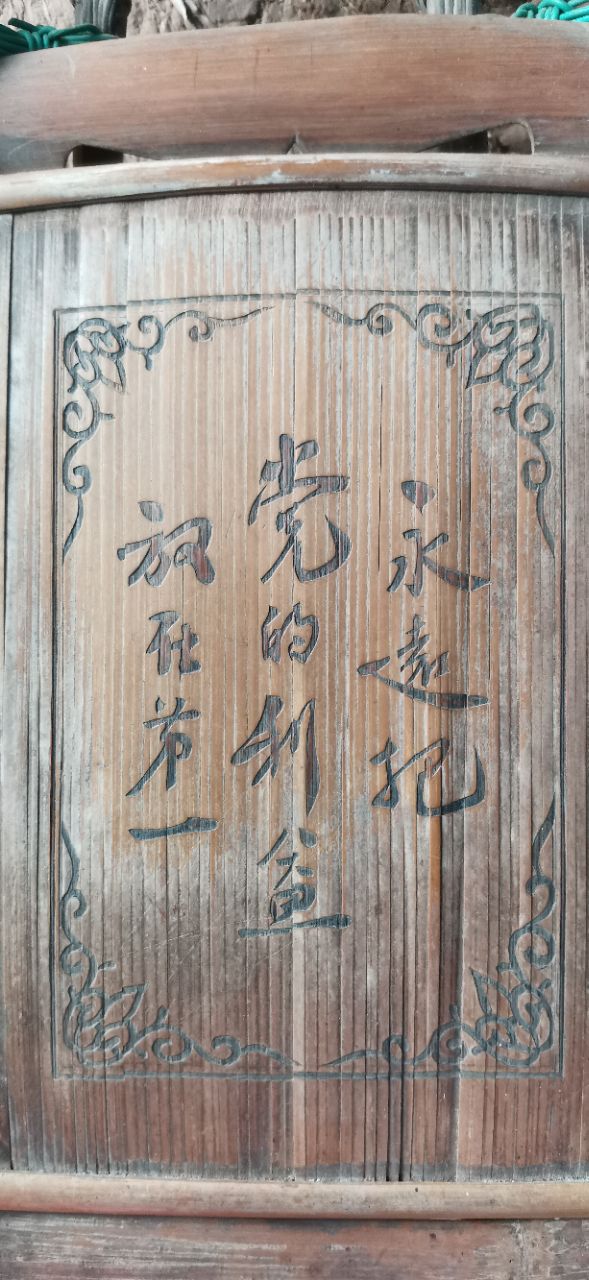 永远把
党的利益
放在第一